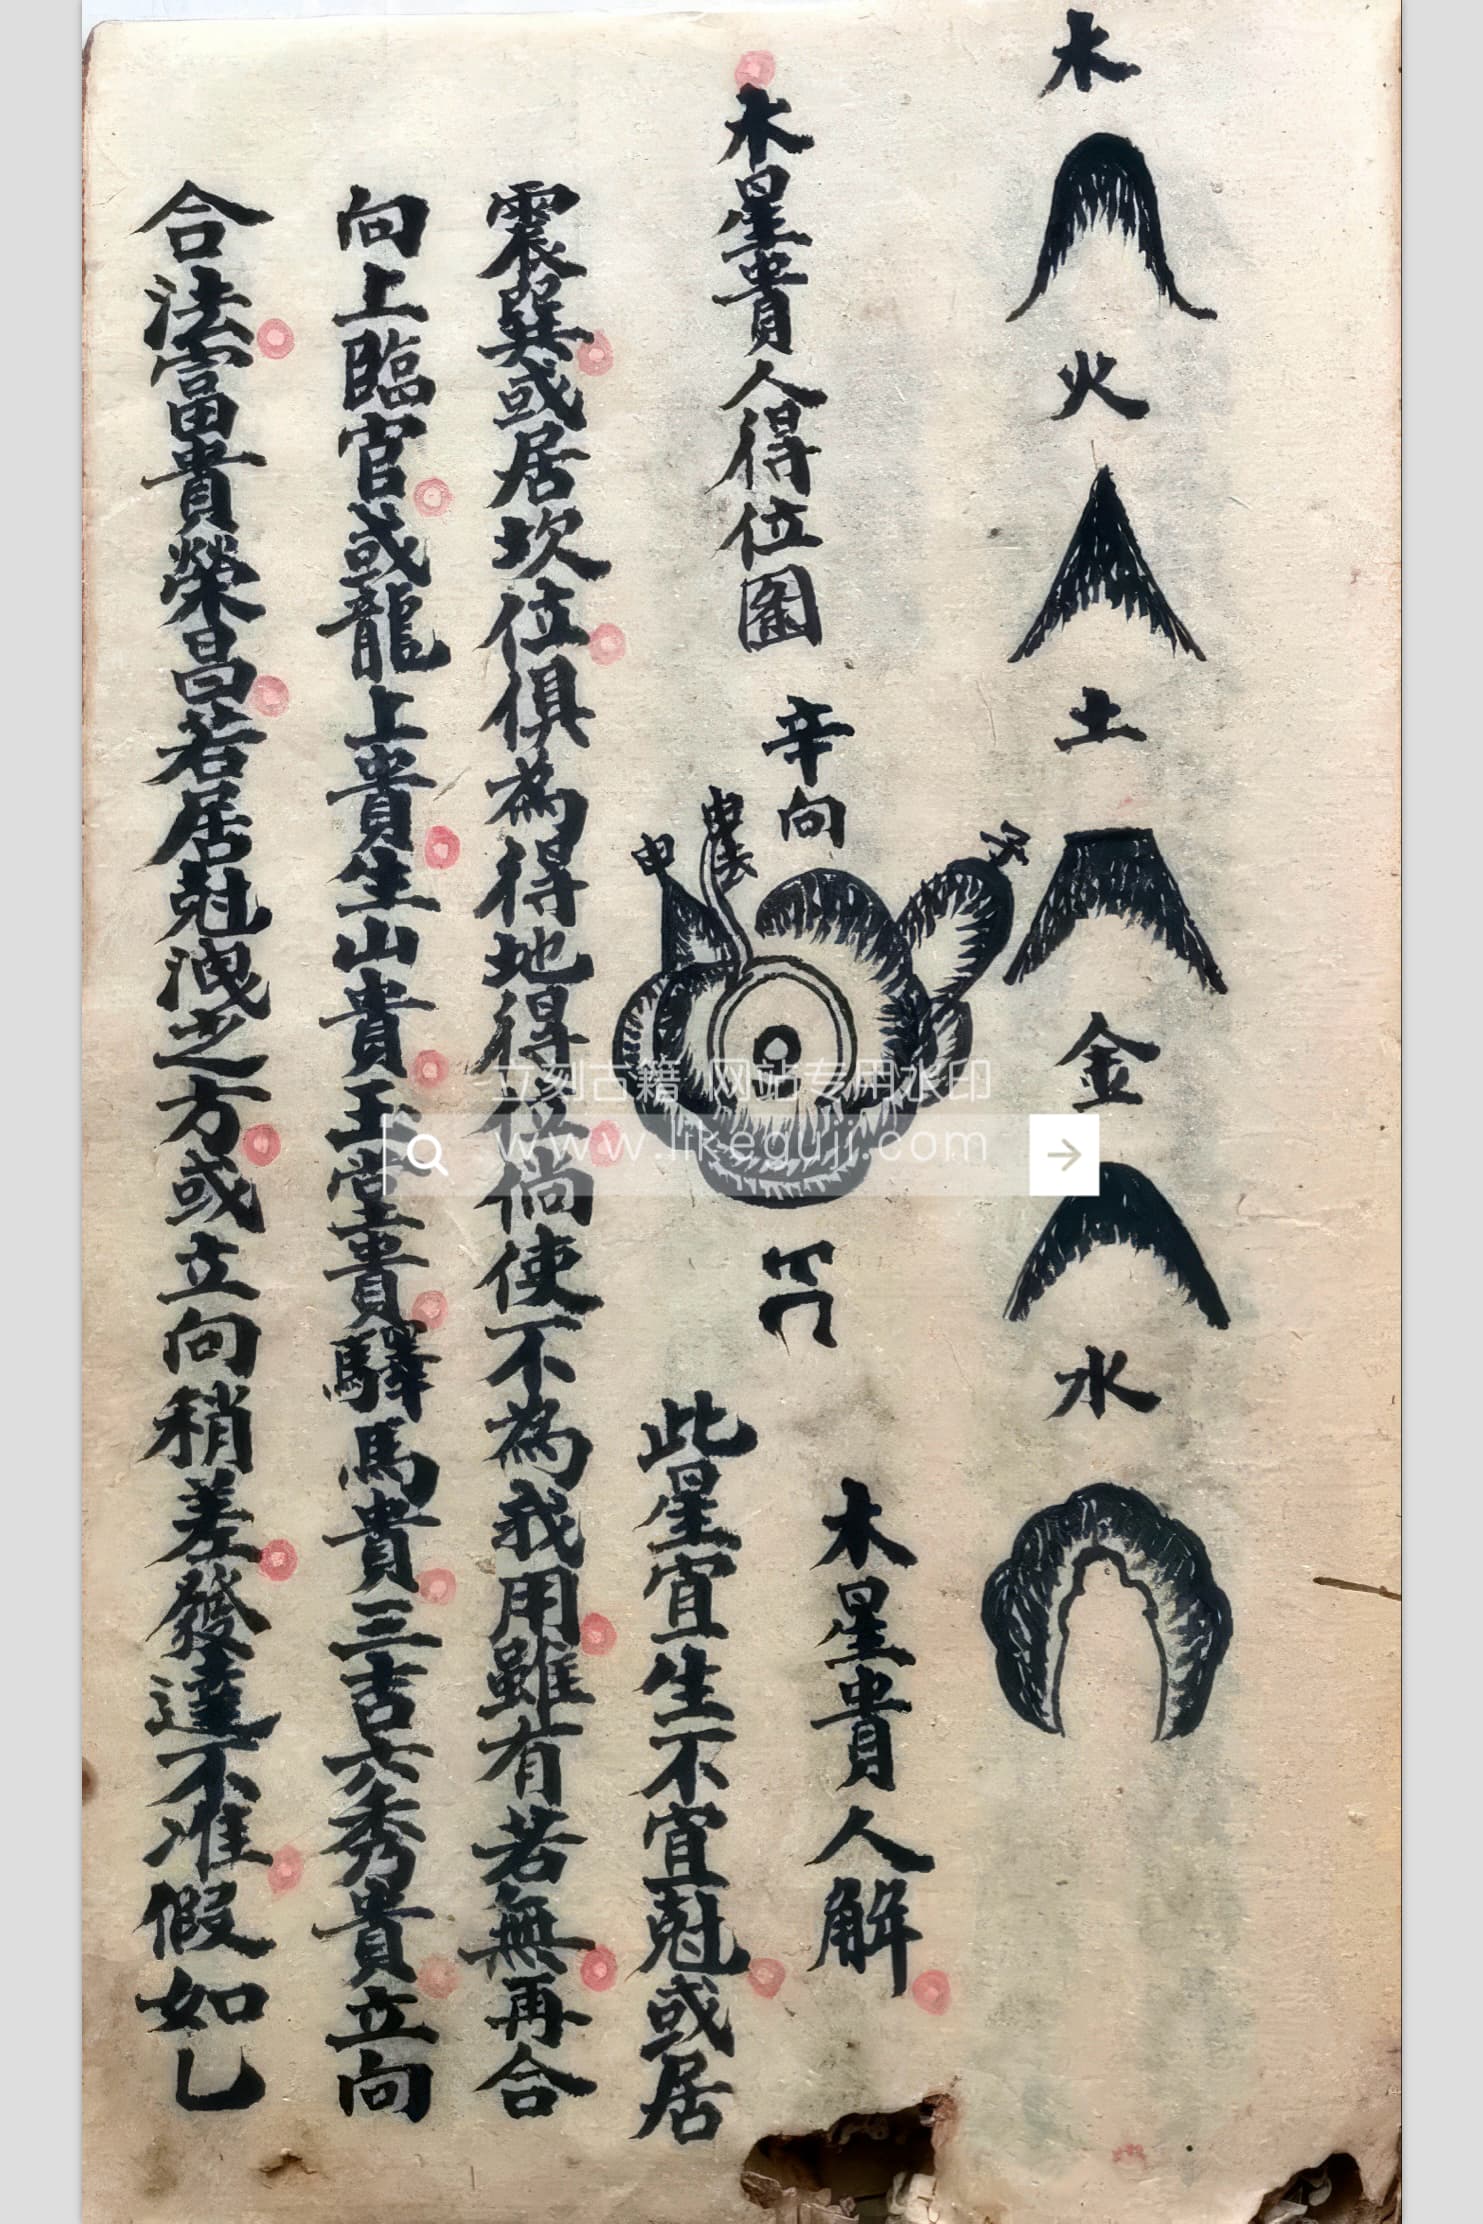 木
火
土
金
水
木星貴人得位圖
辛向
子
申
木星貴人解
此星宜生不宜尅或居
震巽或居坎位俱為得地得位倘使不為我用雖有若無再合
向上臨官或龍上貴生山貴玉堂貴驛馬貴三吉六秀貴立向
合法富貴榮昌若居尅洩之方或立向稍差發達不准假如乚
立刻古籍 网站专用水印
www.likeguji.com